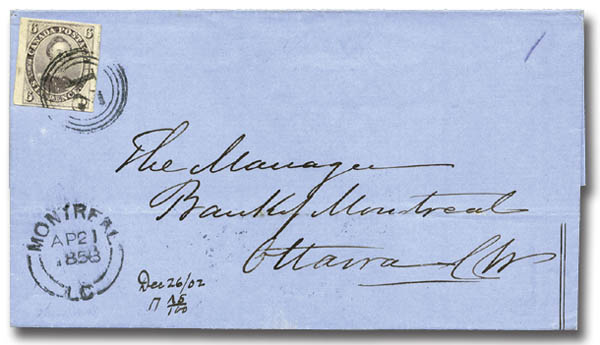 6 CANADA POSTAGE 6
6
The Manager
Bank of Montreal
Ottawa CW
MONTREAL
AP 21
1858
LC
Dec 26/02
17 45/100